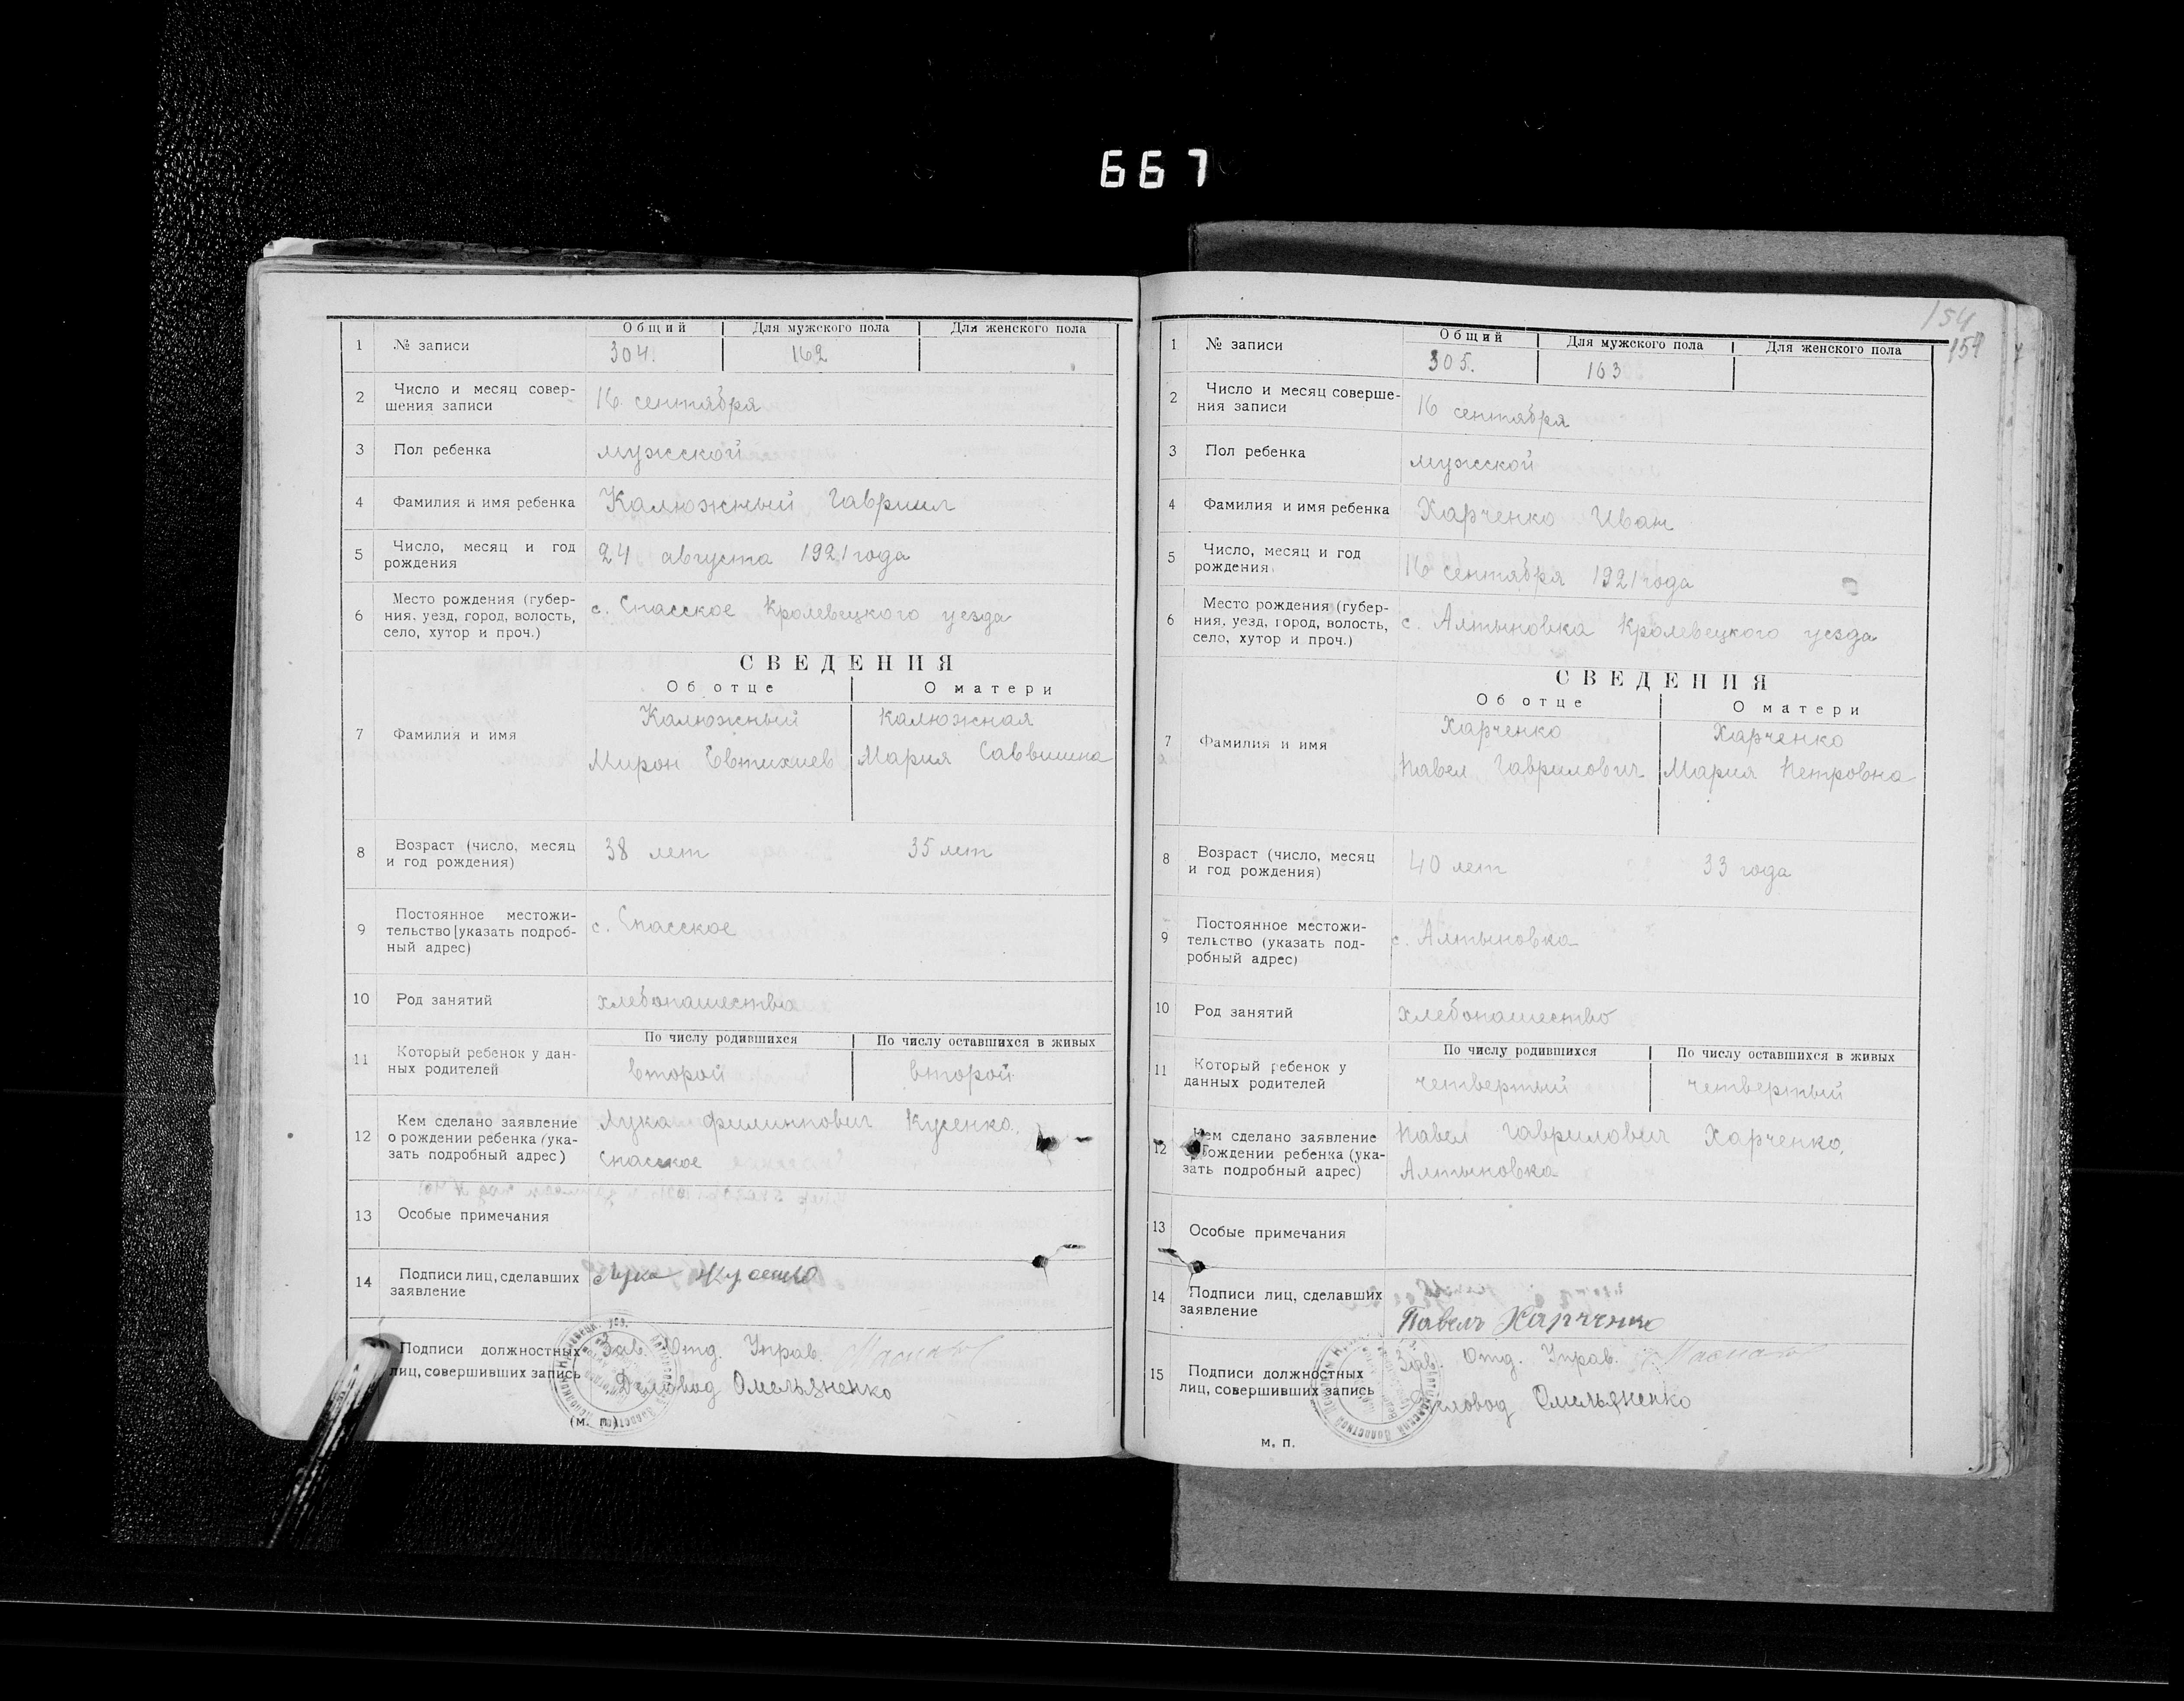 667
Общий Для мужского пола Для женского пола
1 № записи 304. 162
2 Число и месяц совер-
шения записи 16 сентября
3 Пол ребенка мужской
4 Фамилия и имя ребенка Калюжный Гавриил
5 Число, месяц и год
рождения 24 августа 1921 года
6 Место рождения (губер-
ния, уезд, город, волость,
село, хутор и проч.) с. Спасское Кролевецкого уезда
СВЕДЕНИЯ
Об отце О матери
7 Фамилия и имя Калюжный Калюжная
Мирон Евтихиев Мария Саввишна
8 Возраст (число, месяц
и год рождения) 38 лет 35 лет
9 Постоянное местожи-
тельство [указать подроб-
ный адрес) с. Спасское
10 Род занятий хлебопашество
По числу родившихся По числу оставшихся в живых
11 Который ребенок у дан-
ных родителей второй второй
12 Кем сделано заявление
о рождении ребенка (ука-
зать подробный адрес) Лука Филиппович Кусенко,
Спасское
13 Особые примечания
14 Подписи лиц, сделавших
заявление Лука
Подписи должностных
лиц, совершивших запись Зав. Отд. Управ.
Деловод Омельяненко
(м. п.)
154
154
Общий Для мужского пола Для женского пола
1 № записи 305. 163
2 Число и месяц соверше-
ния записи 16 сентября
3 Пол ребенка мужской
4 Фамилия и имя ребенка Харченко Иван
5 Число, месяц и год
рождения 16 сентября 1921 года
6 Место рождения (губер-
ния, уезд, город, волость,
село, хутор и проч.) с. Алтыновка Кролевецкого уезда
СВЕДЕНИЯ
Об отце О матери
7 Фамилия и имя Харченко Харченко
Павел Гаврилович Мария Петровна
8 Возраст (число, месяц
и год рождения) 40 лет 33 года
9 Постоянное местожи-
тельство (указать под-
робный адрес) с. Алтыновка
10 Род занятий хлебопашество
По числу родившихся По числу оставшихся в живых
11 Который ребенок у
данных родителей четвертый четвертый
12 Кем сделано заявление
о рождении ребенка (ука-
зать подробный адрес) Павел Гаврилович Харченко,
Алтыновка
13 Особые примечания
14 Подписи лиц, сделавших
заявление Павелъ Харченко
15 Подписи должностных
лиц, совершивших запись Зав. Отд. Управ.
Деловод Омельяненко
м. п.